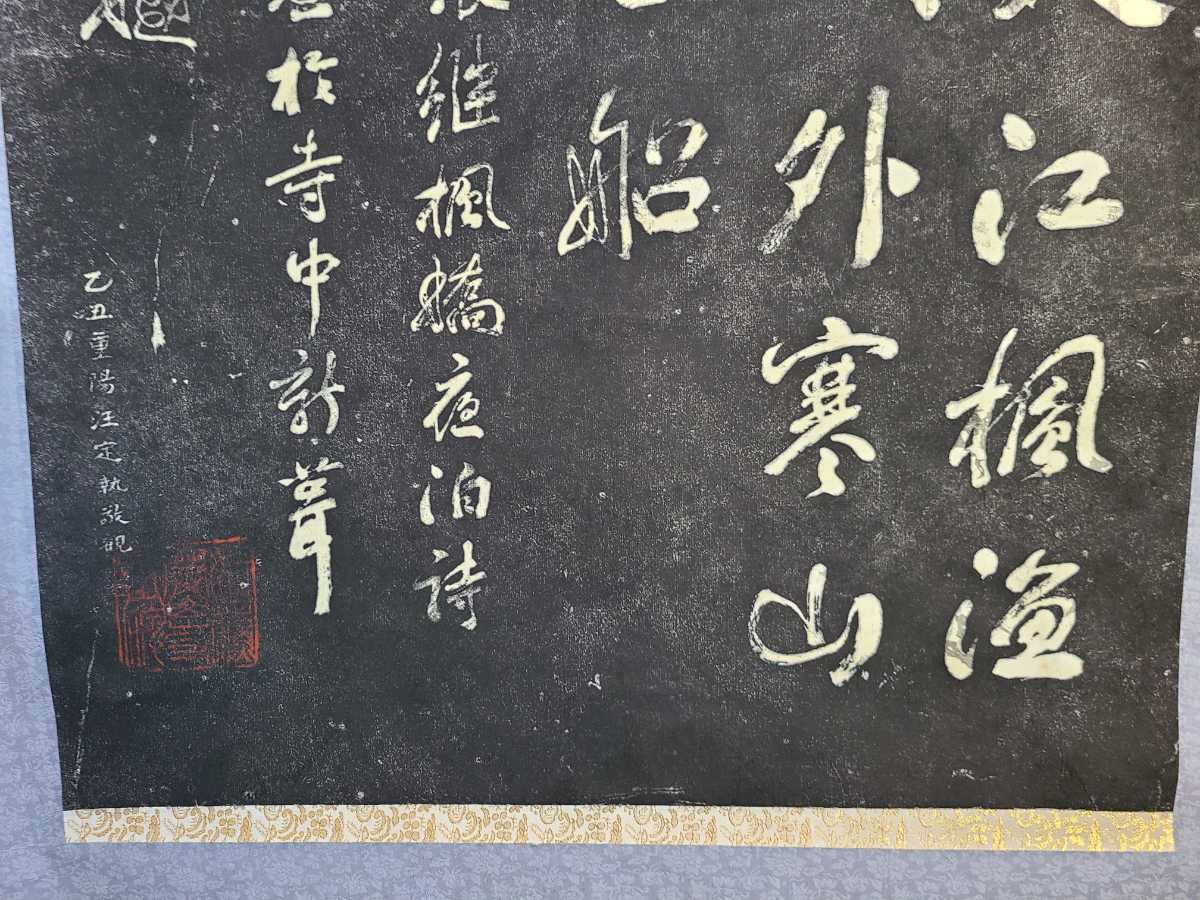 江楓漁
外寒山
船
继楓橋夜泊詩
於寺中新葺
乙丑重陽汪定執敬觀